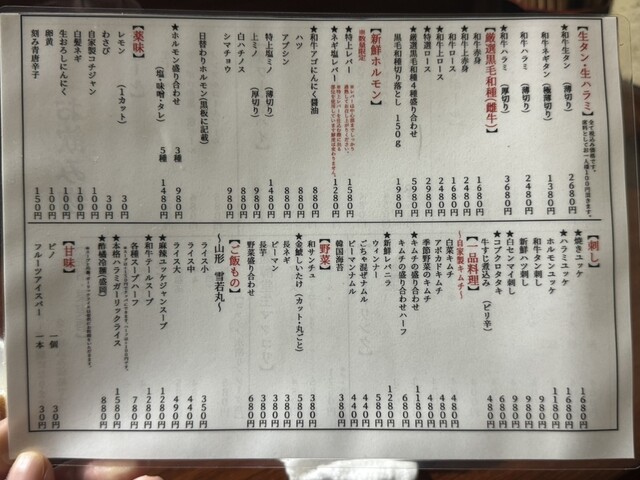 【生タン・生ハラミ】
全て税込み価格です。
席料としてお一人様100円頂きます。
★和牛生タン (薄切り) 2680円
和牛タン (薄切り) 2480円
和牛ネギタン (極薄切り) 1380円
和牛ハラミ (薄切り) 2480円
★和牛ハラミ (厚切り) 3680円
【厳選黒毛和種(雌牛)】
和牛赤身 1680円
★和牛上赤身 2480円
和牛ロース 1680円
★和牛上ロース 2480円
★特選ロース 2980円
★厳選黒毛和種4種盛り合わせ 5980円
黒毛和種切り落とし 150g 1980円
【新鮮ホルモン】
※数量限定
★特上レバー 1580円
★ネギ塩レバー 1280円
★和牛アゴにんにく醤油 880円
ハツ 880円
アブシン 880円
特上塩ミノ (薄切り) 1480円
上ミノ (厚切り) 1280円
白ハチノス 880円
シマチョウ 980円
日替わりホルモン(黒板に記載)
★ホルモン盛り合わせ 3種 980円
(塩・味噌・タレ) 5種 1480円
【薬味】
レモン (1カット) 30円
わさび 30円
自家製コチジャン 100円
白髪ネギ 100円
生おろしにんにく 100円
卵黄 100円
刻み青唐辛子 150円
【刺し】
★焼きユッケ 1680円
★ハラミユッケ 1680円
ホルモンユッケ 1180円
和牛タン刺し 980円
新鮮ハツ刺し 980円
★白センマイ刺し 980円
★コブクロタタキ 680円
牛すじ煮込み (ピリ辛) 480円
【一品料理】
〜自家製キムチ〜
白菜キムチ 480円
アボカドキムチ 480円
季節野菜のキムチ 480円
★キムチの盛り合わせ 1180円
キムチの盛り合わせハーフ 680円
★新鮮レバニラ 1280円
ウィンナー 580円
ごちゃ混ぜナムル 440円
ピーマンナムル 440円
韓国海苔 380円
【野菜】
和サンチュ 380円
★金鯱しいたけ (カット・丸ごと) 580円
長ネギ 380円
ピーマン 380円
長芋 380円
野菜盛り合わせ 680円
【ご飯もの】
〜山形 雪若丸〜
ライス小 350円
ライス中 440円
ライス大 490円
★麻辣ユッケジャンスープ 1280円
★和牛テールスープ 1280円
各種スープハーフ 780円
★本格ハラミガーリックライス 1580円
★酢橘冷麺(盛岡) 880円
【甘味】
ピノ 一個 30円
フルーツアイスバー 一本 30円